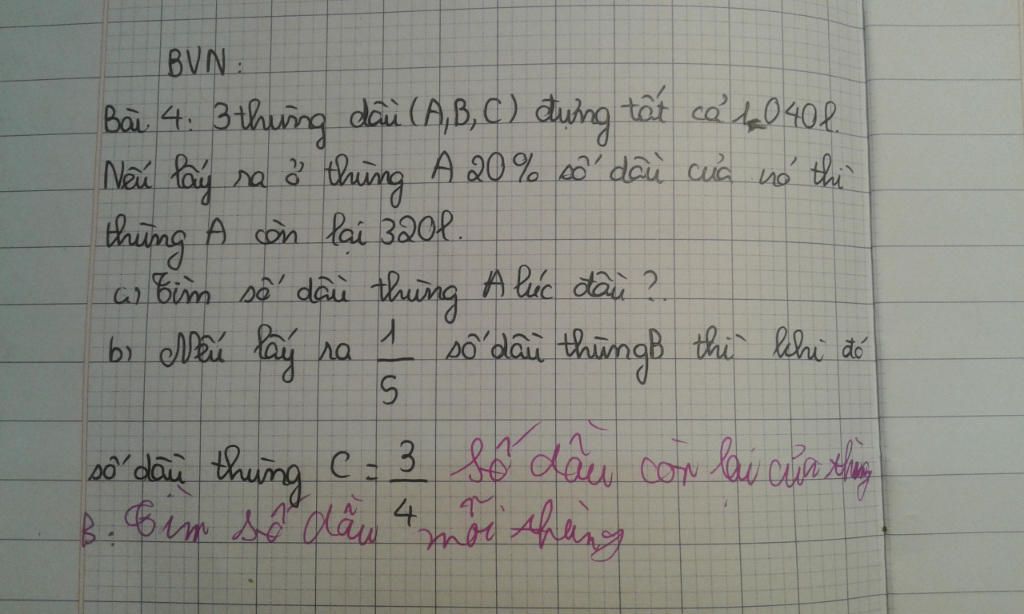 BVN:
Bài 4: 3 thùng dầu (A,B,C) đựng tất cả 1.040l.
Nếu lấy ra ở thùng A 20% số dầu của nó thì
thùng A còn lại 320l.
a) Tìm số dầu thùng A lúc đầu?
b) Nếu lấy ra 1/5 số dầu thùng B thì khi đó
số dầu thùng C = 3/4 số dầu còn lại của thùng
B. Tìm số dầu mỗi thùng